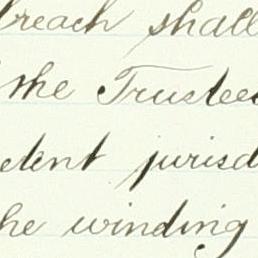 breach shall
the Trustees
etent jurisd
he winding